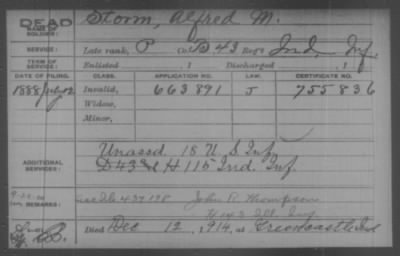 DEAD
NAME OF SOLDIER: Storm, Alfred M.
SERVICE: Late rank, P Co. D 43 Reg't Ind. Inf.
TERM OF SERVICE: Enlisted , 1 Discharged , 1
DATE OF FILING. CLASS. APPLICATION NO. LAW. CERTIFICATE NO.
1888 July 02 Invalid, 663891 J 755836
Widow,
Minor,
ADDITIONAL SERVICES: Unassd. 18 U. S. Inf.
D 43 & H 115 Ind. Inf.
REMARKS: 437198 John R. Thompson
Died Dec 12, 1914, at Greencastle Ind